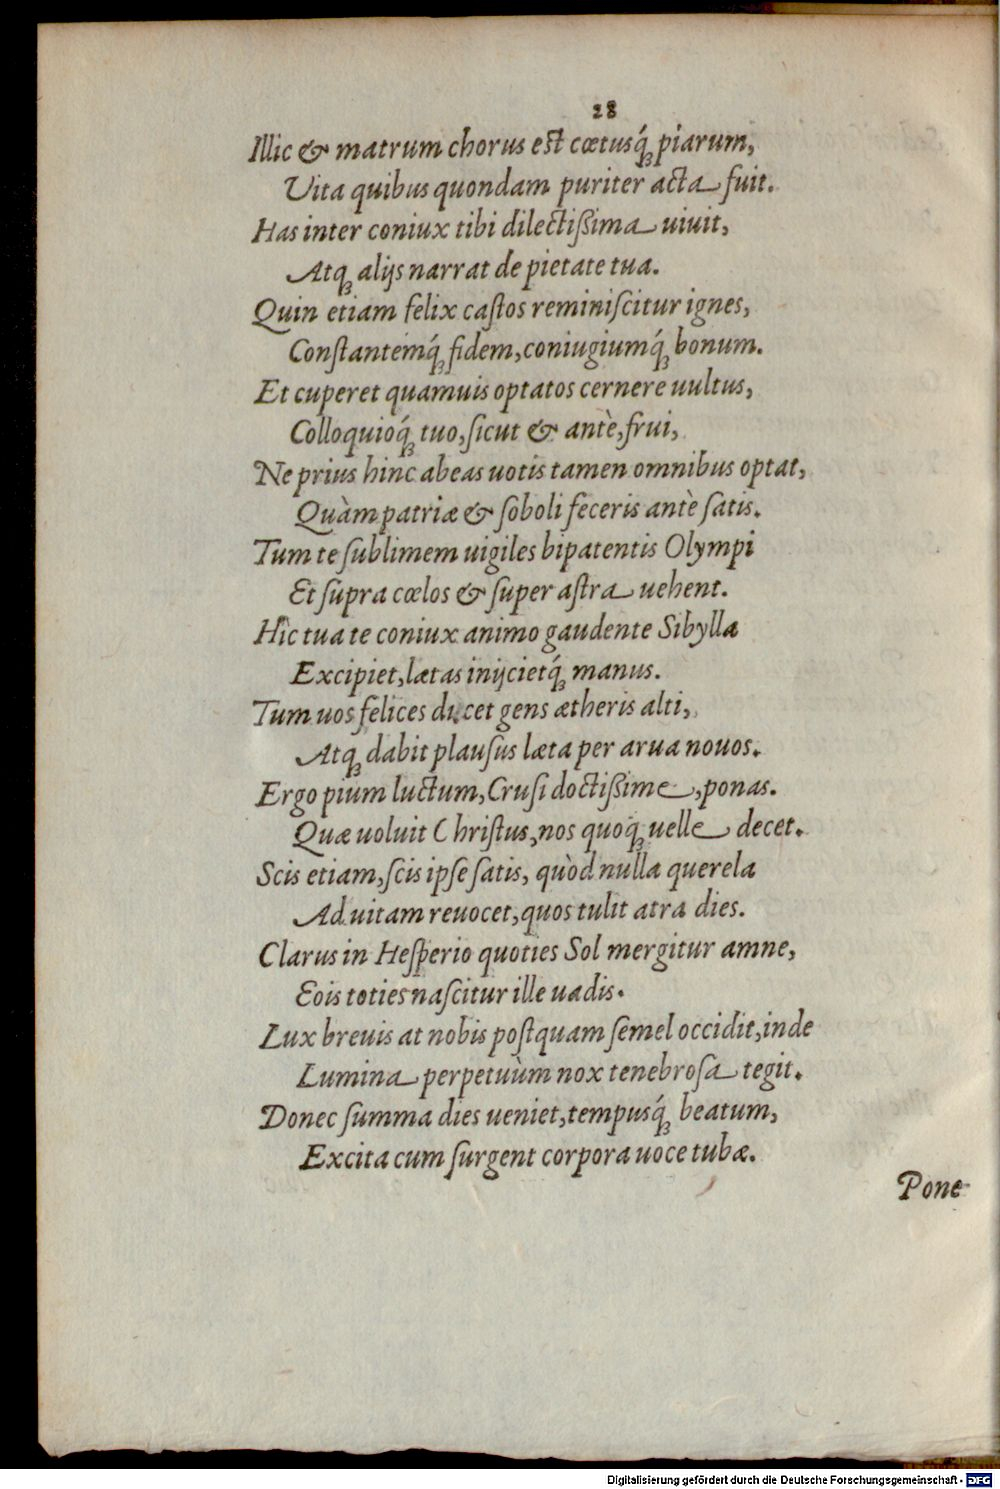 28
Illic & matrum chorus est cœtusq́; piarum,
Uita quibus quondam puriter acta fuit.
Has inter coniux tibi dilectißima uiuit,
Atq; alijs narrat de pietate tua.
Quin etiam felix castos reminiſcitur ignes,
Conſtantemq́; fidem, coniugiumq́; bonum.
Et cuperet quamuis optatos cernere uultus,
Colloquioq́; tuo, ſicut & antè, frui,
Ne prius hinc abeas uotis tamen omnibus optat,
Quàm patriæ & ſoboli feceris antè ſatis.
Tum te ſublimem uigiles bipatentis Olympi
Et ſupra cœlos & ſuper aſtra uehent.
Hîc tua te coniux animo gaudente Sibylla
Excipiet, lætas inijcietq́; manus.
Tum uos felices ducet gens ætheris alti,
Atq; dabit plauſus læta per arua nouos.
Ergo pium luctum, Cruſi doctißime, ponas.
Quæ uoluit Chriſtus, nos quoq; uelle decet.
Scis etiam, ſcis ipſe ſatis, quòd nulla querela
Ad uitam reuocet, quos tulit atra dies.
Clarus in Heſperio quoties Sol mergitur amne,
Eois toties naſcitur ille uadis.
Lux breuis at nobis poſtquam ſemel occidit, inde
Lumina perpetuùm nox tenebroſa tegit.
Donec ſumma dies ueniet, tempusq́; beatum,
Excita cum ſurgent corpora uoce tubæ.
Pone
Digitalisierung gefördert durch die Deutsche Forschungsgemeinschaft - DFG